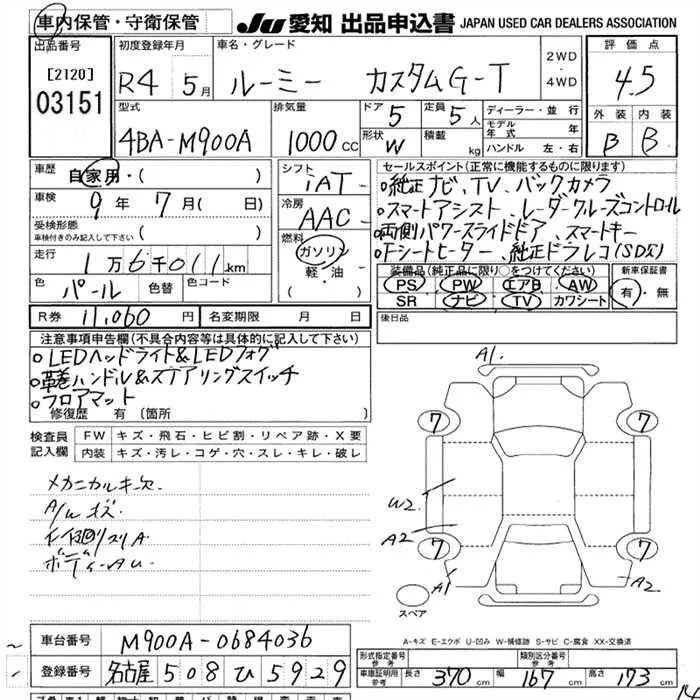 車内保管・守衛保管
JU 愛知 出品申込書 JAPAN USED CAR DEALERS ASSOCIATION
出品番号
[2120]
03151
初度登録年月
R4 5月
車名・グレード
ルーミー カスタムG-T
2WD
4WD
評価点
4.5
型式
4BA-M900A
排気量
1000CC
ドア 5
形状 W
定員 5人
積載 kg
ディーラー・並行
モデル年式 年
ハンドル 左・右
外装 内装
B B
車歴
自家用・( )
車検
9年7月( 日)
受検形態
車検付きのみ記入して下さい ( )
走行
1万6千011km
色 パール 色替 色コード
シフト
iAT
冷房
AAC
燃料
ガソリン
軽・油
セールスポイント(正常に機能するものに限ります)
○純正ナビ、TV、バックカメラ
○スマートアシスト、レーダークルーズコントロール
○両側パワースライドドア、スマートキー
○Fシートヒーター、純正ドラレコ(SD欠)
装備品(純正品に限り○をつけてください)
PS PW エアB AW
SR ナビ TV カワシート
新車保証書
有・無
R券 11,060円 名変期限 月 日
後日品
注意事項申告欄(不具合内容等は具体的に記入して下さい)
○LEDヘッドライト&LEDフォグ
○革巻ハンドル&ステアリングスイッチ
○フロアマット
修復歴 有 〔箇所 〕
検査員記入欄
FW キズ・飛石・ヒビ割・リペア跡・X要
内装 キズ・汚レ・コゲ・穴・スレ・キレ・破レ
メカニカルキー欠
A/Wキズ
ボディー
A1
7 7
W2
A2
7 7
A1 A2
スペア
A-キズ E-エクボ U-凹み W-補修跡 S-サビ C-腐食 XX-交換済
車台番号 M900A-0684036
登録番号 名古屋 508 ひ 5929
形式指定番号 参考
類別区分番号 参考
車庫証明用 参考 長さ 370cm 幅 167cm 高さ 173cm